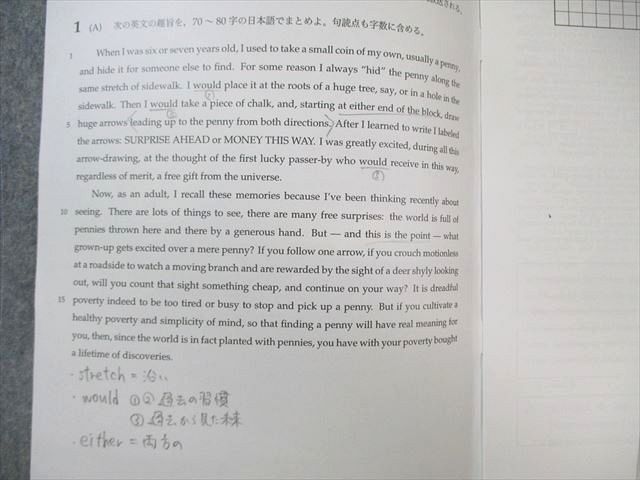 送される。
1 (A) 次の英文の趣旨を，70～80字の日本語でまとめよ。句読点も字数に含める。
1 When I was six or seven years old, I used to take a small coin of my own, usually a penny,
and hide it for someone else to find. For some reason I always "hid" the penny along the
same stretch of sidewalk. I would place it at the roots of a huge tree, say, or in a hole in the
①
sidewalk. Then I would take a piece of chalk, and, starting at either end of the block, draw
②
5 huge arrows leading up to the penny from both directions. After I learned to write I labeled
the arrows: SURPRISE AHEAD or MONEY THIS WAY. I was greatly excited, during all this
arrow-drawing, at the thought of the first lucky passer-by who would receive in this way,
③
regardless of merit, a free gift from the universe.
Now, as an adult, I recall these memories because I've been thinking recently about
10 seeing. There are lots of things to see, there are many free surprises: the world is full of
pennies thrown here and there by a generous hand. But — and this is the point — what
grown-up gets excited over a mere penny? If you follow one arrow, if you crouch motionless
at a roadside to watch a moving branch and are rewarded by the sight of a deer shyly looking
out, will you count that sight something cheap, and continue on your way? It is dreadful
15 poverty indeed to be too tired or busy to stop and pick up a penny. But if you cultivate a
healthy poverty and simplicity of mind, so that finding a penny will have real meaning for
you, then, since the world is in fact planted with pennies, you have with your poverty bought
a lifetime of discoveries.
・stretch = 沿い
・would ①② 過去の習慣
③ 過去から見た未来
・either = 両方の